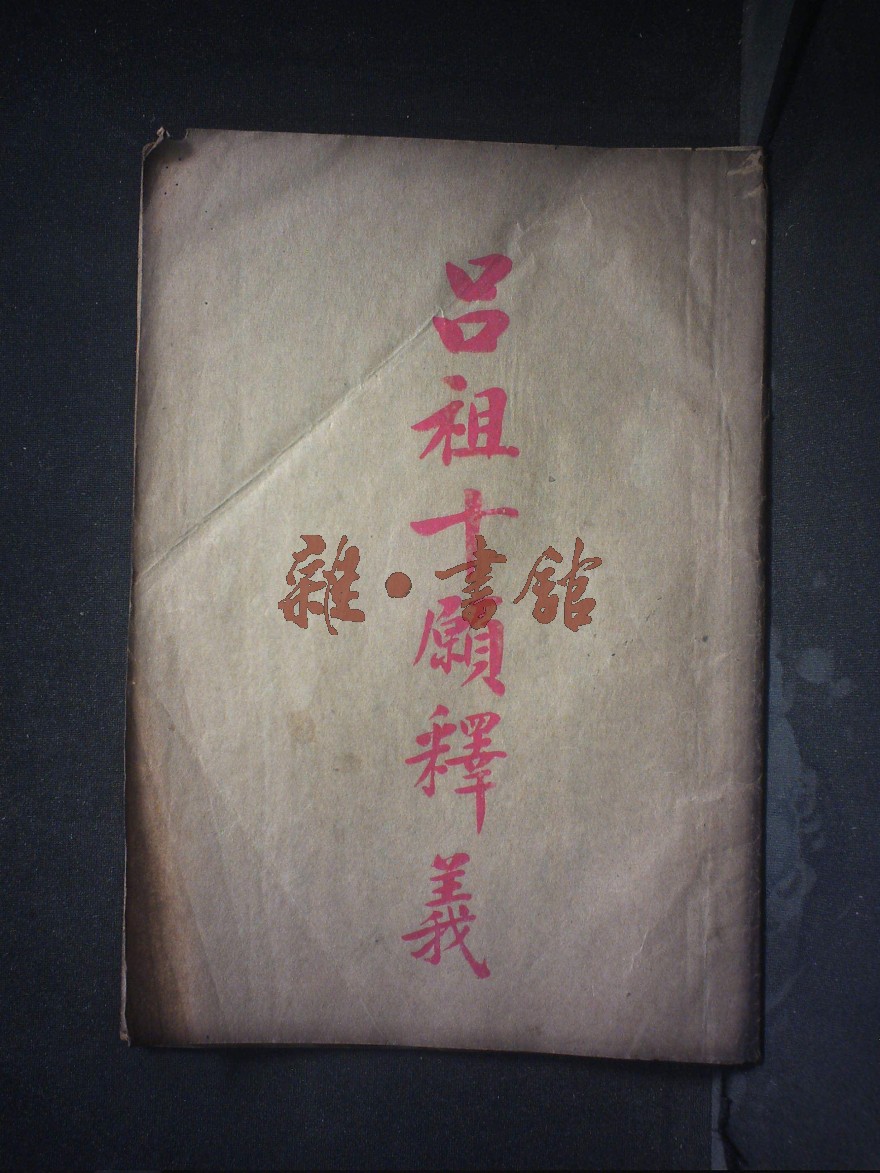 呂祖十願釋義
雜·書館